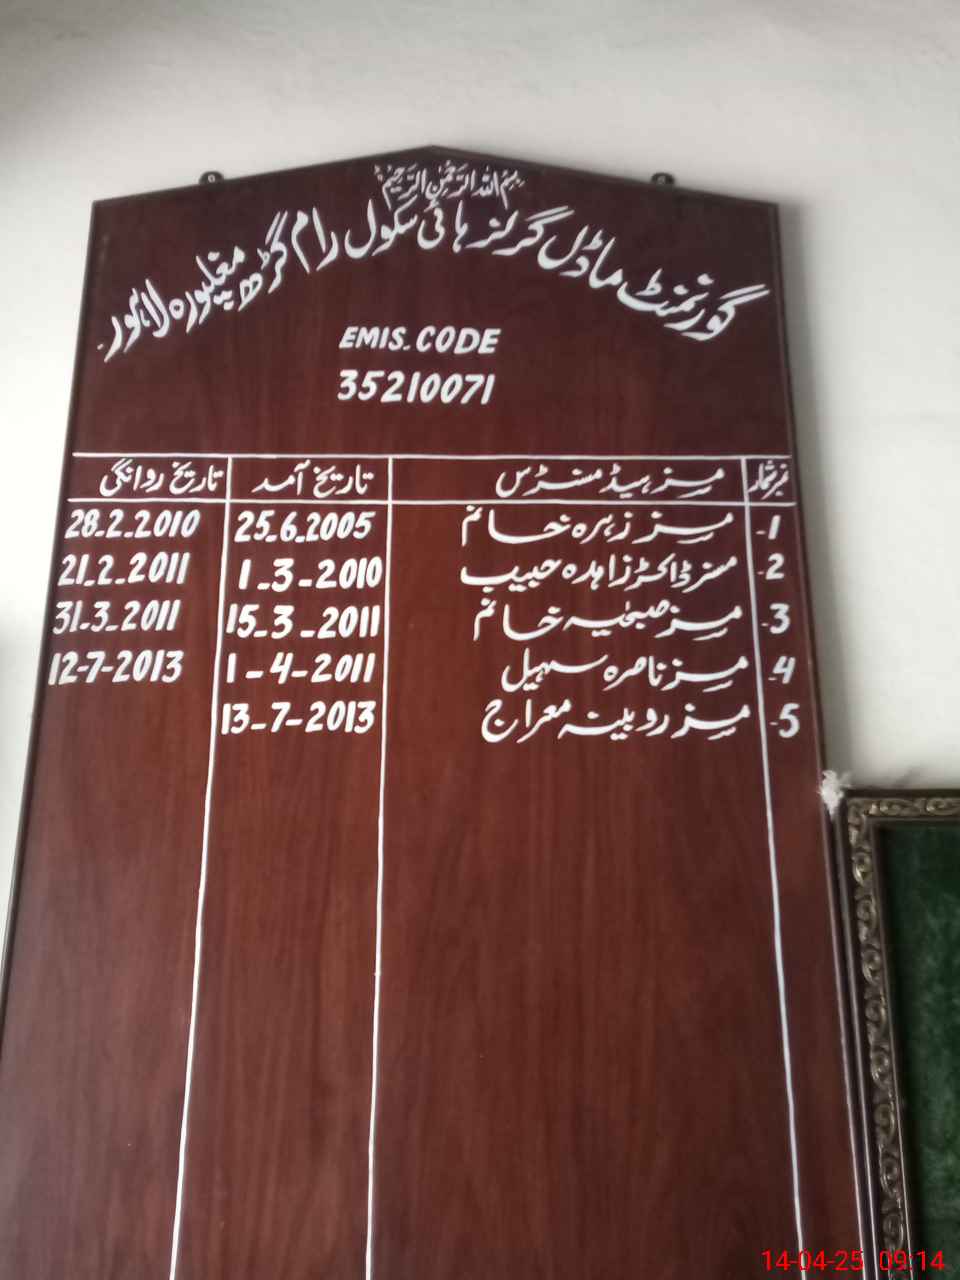 بسم اللہ الرحمن الرحیم
گورنمنٹ ماڈل گرلز ہائی سکول رام گڑھ مغلپورہ لاہور
EMIS. CODE
35210071
نمبر شمار مسز ہیڈ مسٹرس تاریخ آمد تاریخ روانگی
1- مسز زہرہ خانم 25.6.2005 28.2.2010
2- مسز ڈاکٹر زاہدہ حبیب 1-3-2010 21.2.2011
3- مسز صبحیہ خانم 15-3-2011 31.3.2011
4- مسز ناصرہ سہیل 1-4-2011 12-7-2013
5- مسز روبینہ معراج 13-7-2013
14-04-25 09:14